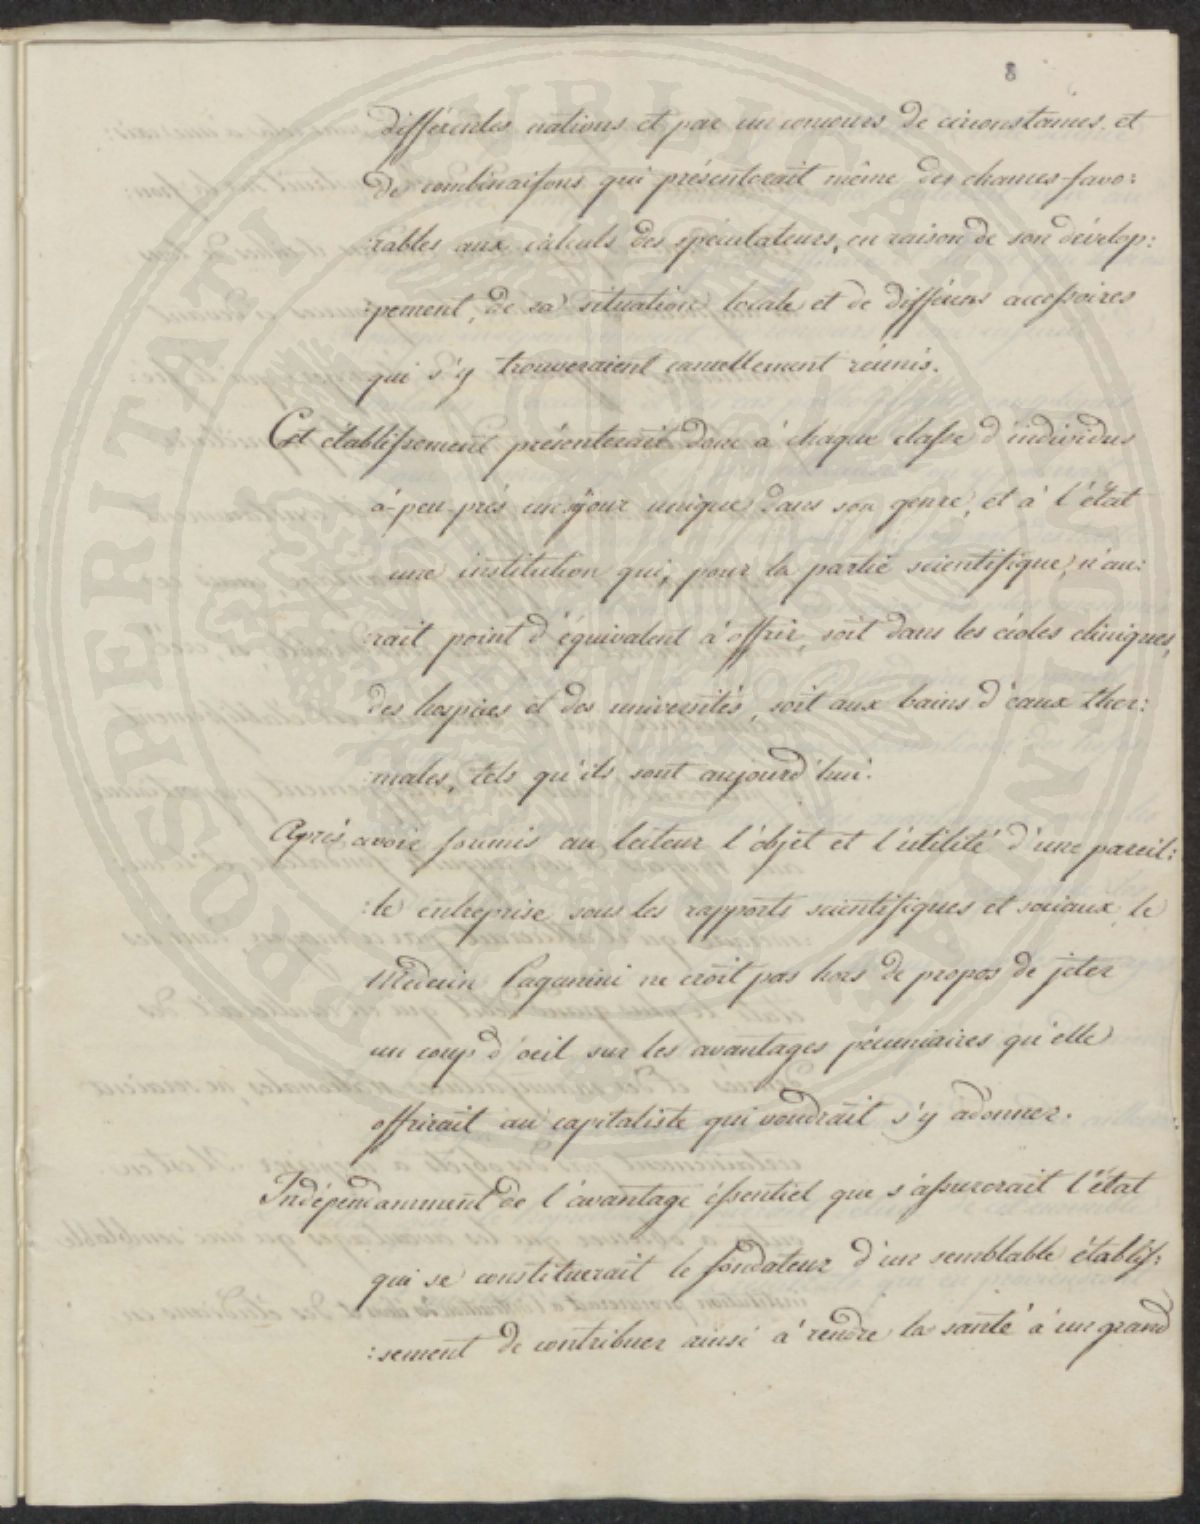 8
différentes nations et par un concours de circonstances et
de combinaisons qui présenterait même des chances favo:
:rables aux calculs des spéculateurs, en raison de son dévelop:
:pement, de sa situation locale et de différens accessoires
qui s'y trouveraient réunis.
Cet établissement présenterait donc à chaque classe d'individus
à-peu-près un séjour unique dans son genre, et à l'état
une institution qui, pour la partie scientifique, n'au:
:rait point d'équivalent à offrir, soit dans les écoles cliniques,
des hospices et des universités, soit aux bains d'eaux ther:
:males, tels qu'ils sont aujourd'hui.
Après avoir soumis au lecteur l'objet et l'utilité d'une pareil:
:le entreprise sous les rapports scientifiques et sociaux, le
Médecin Paganini ne croit pas hors de propos de jeter
un coup d'oeil sur les avantages pécuniaires qu'elle
offrirait au capitaliste qui voudrait s'y adonner.
Indépendamment de l'avantage essentiel que s'assurerait l'état
qui se constituerait le fondateur d'un semblable établis:
:sement de contribuer ainsi à rendre la santé à un grand
PROSPERITATI PUBLICAE